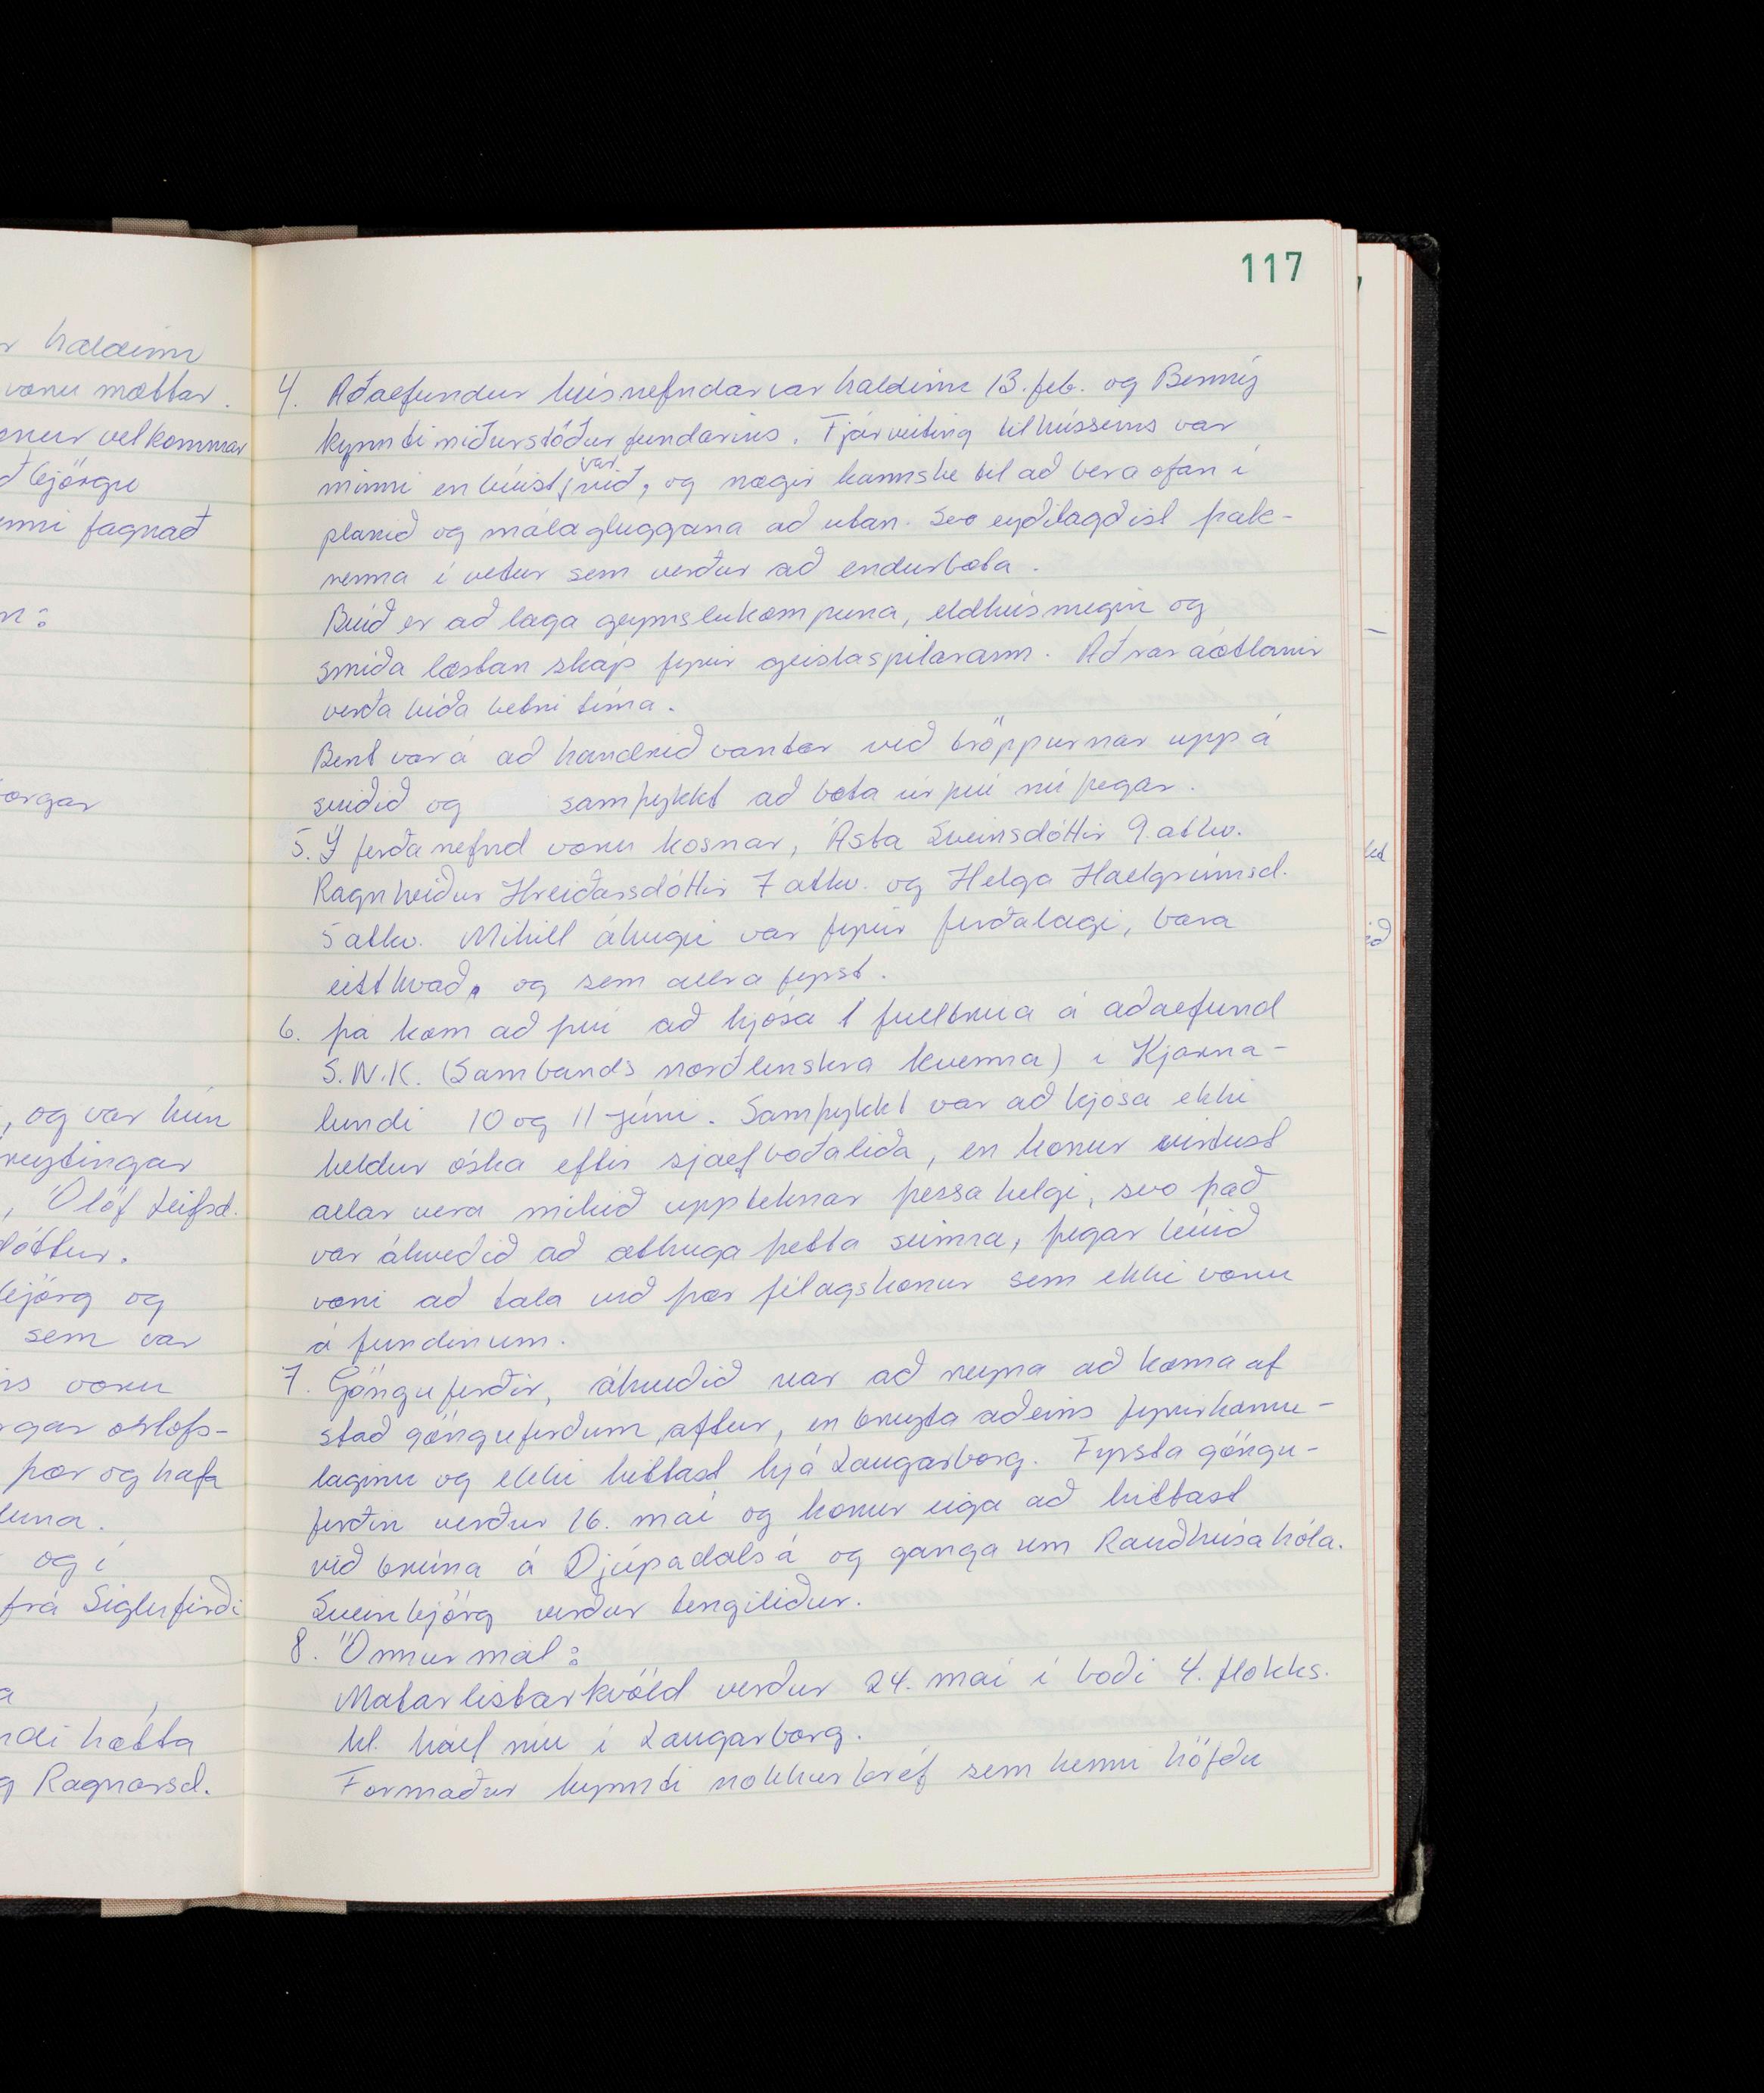 117
4. Aðalfundur húsnefndar var haldinn 13. feb. og Benný
kynnti niðurstöður fundarins. Fjárveiting til hússins var
minni en búist var við, og nægir kannske til að bera ofan í
planið og mála gluggana að utan. Svo eyðilagðist þak-
renna í vetur sem verður að endurbæta.
Búið er að laga geymslukompuna, eldhúsmegin og
smíða læstan skáp fyrir geislaspilarann. Aðrar áætlanir
verða bíða betri tíma.
Bent var á að handrið vantar við tröppurnar upp á
sviðið og samþykkt að bæta úr því nú þegar.
5. Í ferðanefnd voru kosnar, Ásta Sveinsdóttir 9. atkv.
Ragnheiður Hreiðarsdóttir 7 atkv. og Helga Hallgrímsd.
5 atkv. Mikill áhugi var fyrir ferðalagi, bara
eitthvað, og sem allra fyrst.
6. Þá kom að því að kjósa 1 fulltrúa á aðalfund
S.N.K. (Sambands norðlenskra kvenna) í Kjarna-
lundi 10 og 11 júní. Samþykkt var að kjósa ekki
heldur óska eftir sjálfboðaliða, en konur virtust
allar vera mikið uppteknar þessa helgi, svo það
var ákveðið að athuga þetta seinna, þegar búið
væri að tala við þær félagskonur sem ekki voru
á fundinum.
7. Gönguferðir, ákveðið var að reyna að koma af
stað gönguferðum aftur, en breyta aðeins fyrirkomu-
laginu og ekki hittast hjá Laugarborg. Fyrsta göngu-
ferðin verður 16. maí og konur eiga að hittast
við brúna á Djúpadalsá og ganga um Rauðhúsahóla.
Sveinbjörg verður tengiliður.
8. Önnur mál:
Matarlistarkvöld verður 24. maí í boði 4. flokks.
kl. hálf níu í Laugarborg.
Formaður kynnti nokkur bréf sem henni höfðu